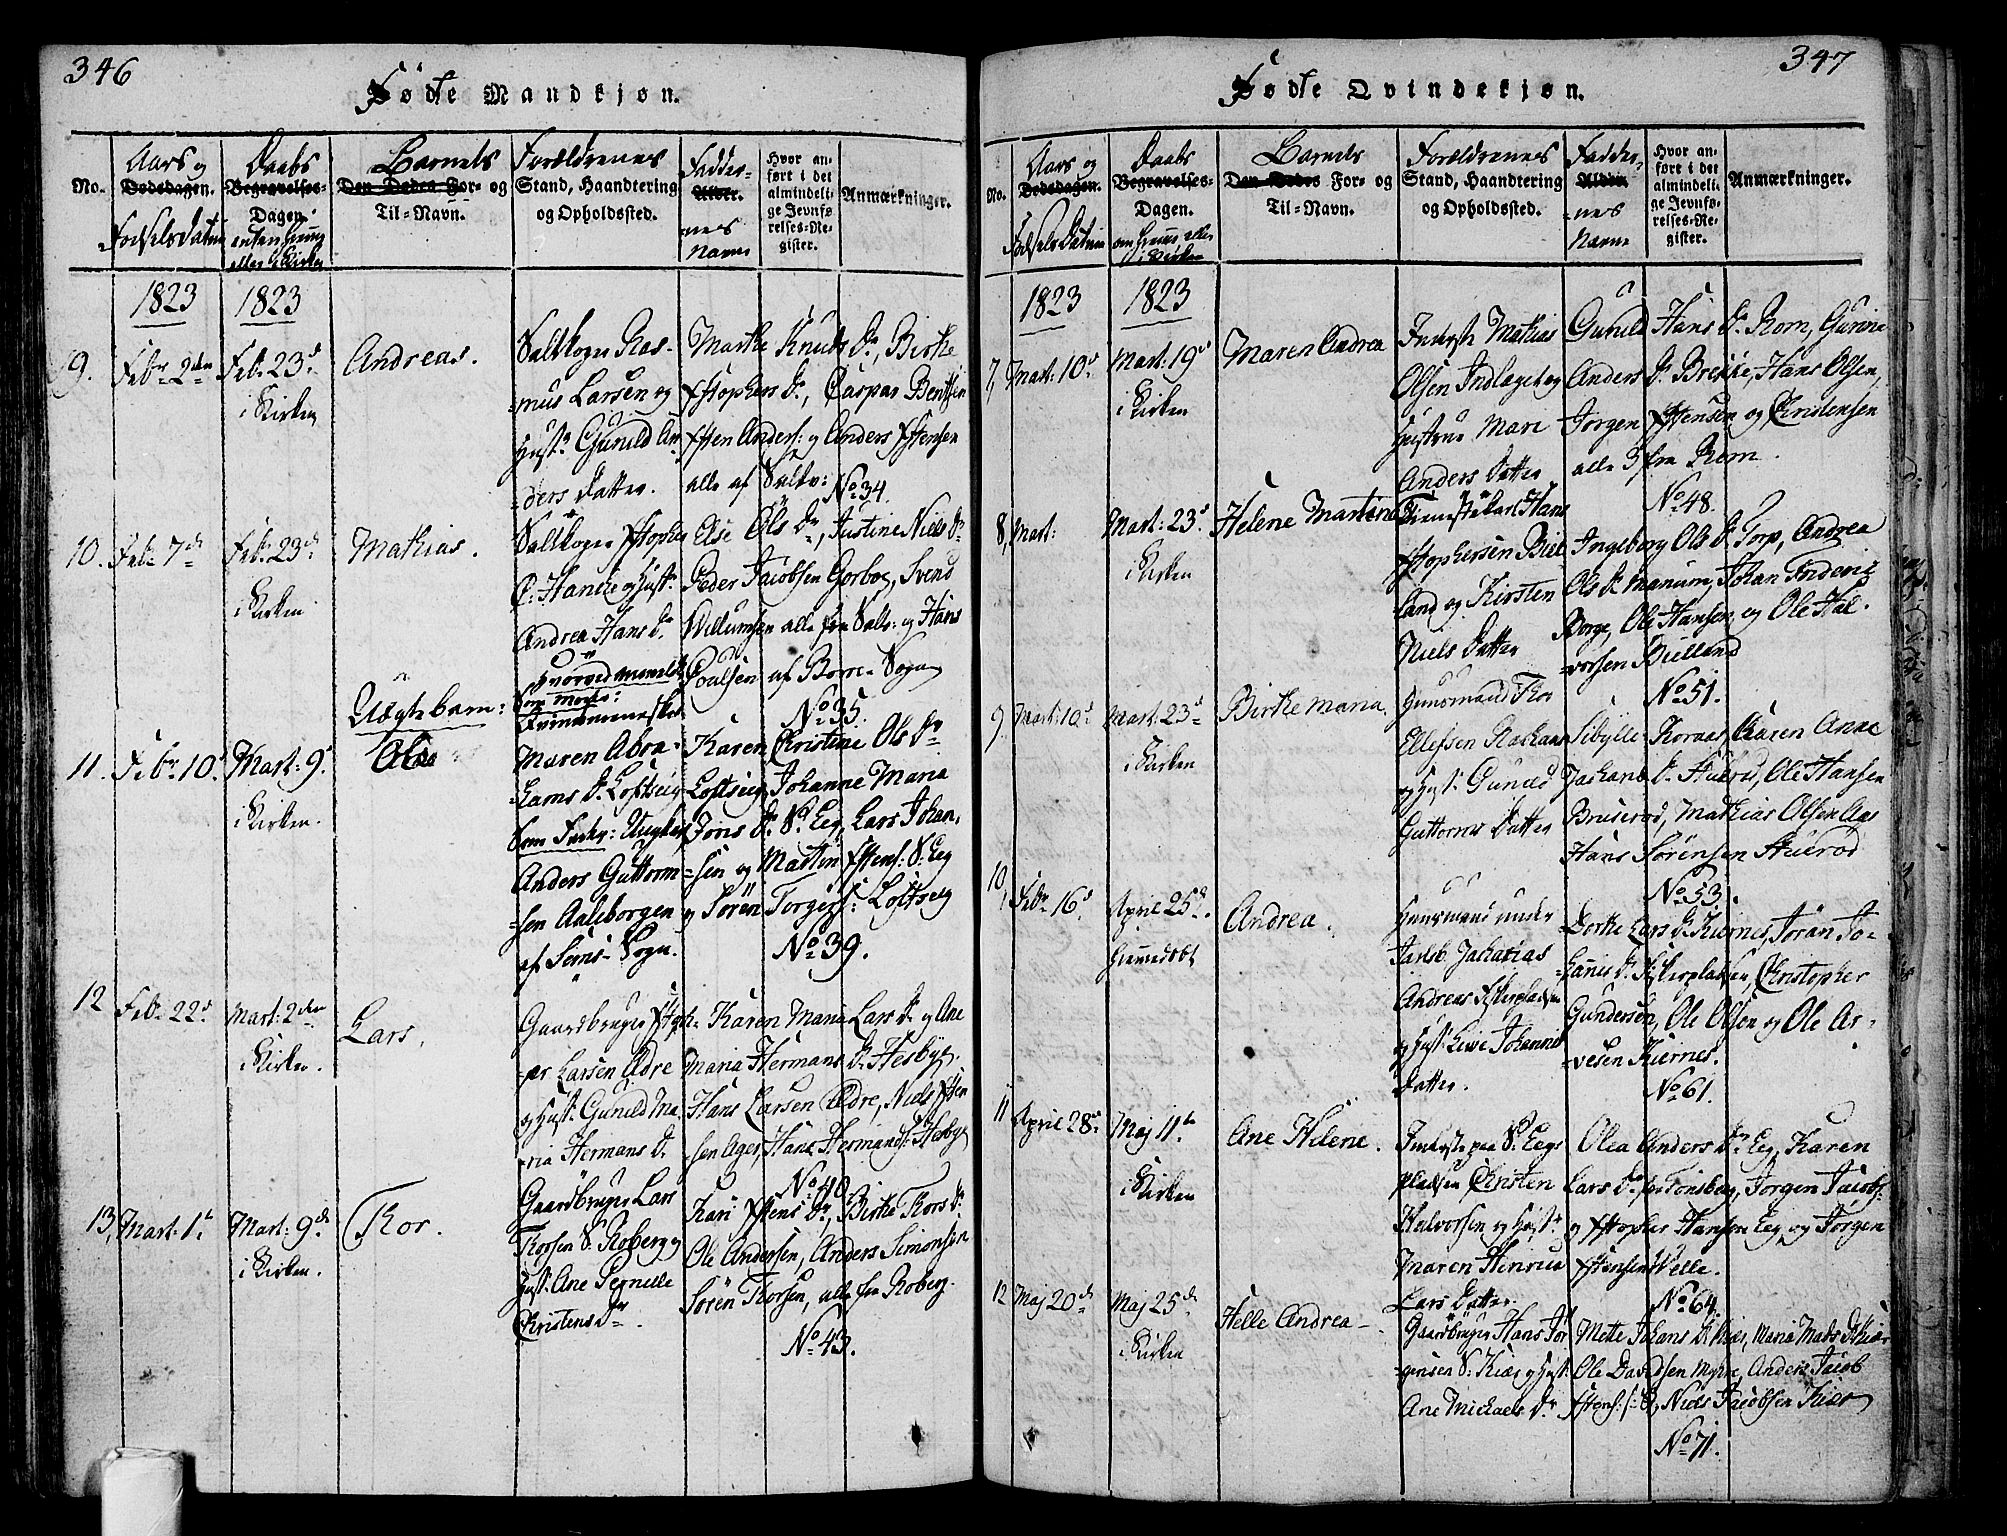 346
Fødte Mandkjøn.
No.
Aars og
Dødsdagen.
Fødselsdatum
Daabs
Begravelses-
Dagen.
eller i Kirken
Barnets
Den Dødes For- og
Til-Navn.
Forældrenes
Stand, Haandtering
og Opholdssted.
Fadder-
Alder.
nes
Navne
Hvor an-
ført i det
almindeli-
ge Jevnfø-
relses-Re-
gister.
Anmærkninger.
1823
1823
9.
Febr 2den
Feb: 23d
i Kirken
Andreas.
Saltkoger Ras-
mus Larsen og
Hust: Gunild An-
ders Datter.
Marthe Knuds Dr, Birthe
Chstophers Dr, Caspar Bentsen
Chsten Anders: og Anders Chstensen
alle af Saltv:
No 34.
10.
Feb: 7d
Feb: 23d
i Kirken
Mathias.
Saltkoger Chstopher
C: Hancke og Hust:
Andrea Hans Dr
Else Ols Dr, Justine Niels Dr
Peder Jacobsen Gorboe, Svend
Willumsen alle fra Saltv: og Hans
Poulsen af Borre Sogn
No 35.
11.
Febr 10d
Mart: 9d
i Kirken.
Uægte barn:
Ole
Som Moder:
Fruentimmesket
Maren Abra-
hams Dr Loftseig
Som Fader: Ungkarl
Anders Guttorm-
sen Aaleborgen
af Sems Sogn.
Karen Christine Ols Dr
Loftseig, Johanne Maria
Jons Dr S. Eeg, Lars Johan-
sen og Martin Chstens: S. Eeg
og Sören Torgers: Loftseig
No 39.
12
Feb: 22d
Mart: 2den
i Kirken.
Lars.
Gaardbruger Chstoph-
er Larsen Adre
og Hust: Gunild Ma-
ria Hermans Dr
Karen Maria Lars Dr og Ane
Maria Hermans Dr Hesbye.
Hans Larsen Ædre, Niels Chsten-
sen Ager, Hans Hermands: Hesbye
No 40
13.
Mart: 1t
Mart: 9d
i Kirken.
Thor.
Gaardbruger Lars
Thorsen S. Roberg og
Hust: Ane Pernille
Christens Dr
Kari Chstens Dr, Birthe Thors Dr
Ole Andersen, Anders Simonsen
Sören Thorsen, alle fra Roberg.
No 43.
347
Fødte Qvindekjøn.
No.
Aars og
Dødsdagen.
Fødselsdatum
Daabs
Begravelses-
Dagen.
om hiemme eller
i Kirken
Barnets
Den Dødes For- og
Til-Navn.
Forældrenes
Stand, Haandtering
og Opholdssted.
Fadder-
Alder
nes
Navne
Hvor an-
ført i det
almindeli-
ge Jevnfø-
relses-Re-
gister.
Anmærkninger.
1823
1823
7,
Mart: 10d
Mart: 19d
i Kirken
Maren Andrea
Inderst Mathias
Olsen Indlaget og
Hustrue Mari
Anders Datter
Gunild Hans Dr Rom, Gunia
Anders Dr Brekke, Hans Olsen,
Jorgen Chstensen og Christensen
alle 3 fra Rom.
No 48.
8,
Mart:
Mart: 23d
i Kirken
Helene Martine
Tienestekarl Hans
Chstophersen Biel-
land og Kirsten
Niels Datter
Ingeborg Ols Dr Torp, Andrea
Ols Dr Manum, Johan Frideric
Borge, Ole Hansen, og Ole Hal-
vorsen Bielland
No 51.
9,
Mart: 10d
Mart: 23d
i Kirken
Birthe Maria.
Huusmand Thor
Ellefsen
og Hust: Gunild
Guttorms Datter
Sibylle Kornes, Karen Anne
Zachariae Dr Huerød, Ole Hansen
Bruserød, Mathias Olsen Aas
Hans Sørensen Huerød
No 53.
10,
Febr 16d
April 25d.
hiemmedøbt
Andrea.
Huusmand under
Jarlsb. Zacharias
Andreas
og Hust: Live Johannes
Datter.
Dorthe Lars Dr Kiernes, Joran Jo-
hannes Dr, Christopher
Gundersen, Ole Olsen og Ole Ar-
vesen Kiernes.
No 61.
11
April 28d
Maj 11te
i Kirken
Ane Helene.
Inderst paa S. Eegs
pladsen Christen
Halvorsen og Hust:
Maren Hinrica
Lars Datter.
Olea Anders Dr Eeg, Karen
Lars Dr fra Tönsberg, Jorgen Jacobs:
og Chstopher Hansen Eeg, og Jorgen
Chstensen Velle.
No 64.
12
Maj 20d
Maj 25d
i Kirken
Helle Andrea
Gaardbruger Hans Jör-
gensen S. Kiær og Hust:
Ane Michaels Dr
Mette Johans Dr Kiær, Maria Mads Dr Kiær
Ole Davidsen Myhre, Anders Jacob
Chstens: S: E, Niels Jacobsen Kiær
No 71.